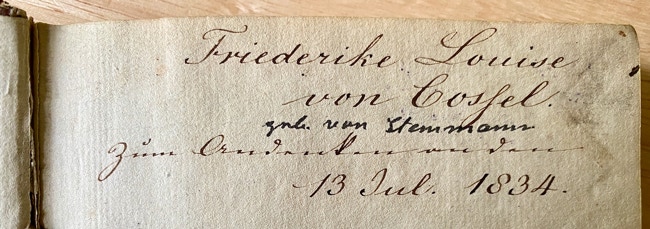 Friederike Louise
von Cossel.
geb. von Stemmann
Zum Andenken an den
13 Jul. 1834.